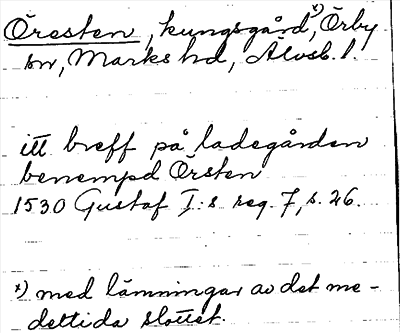 Öresten, kungsgård, x) Örby
sn, Marks hd, Älvsb. l.
itt breff på ladegården
benempd Örsten
1530 Gustaf I:s reg. 7, s. 26.
x) med lämningar av det me-
deltida slottet.